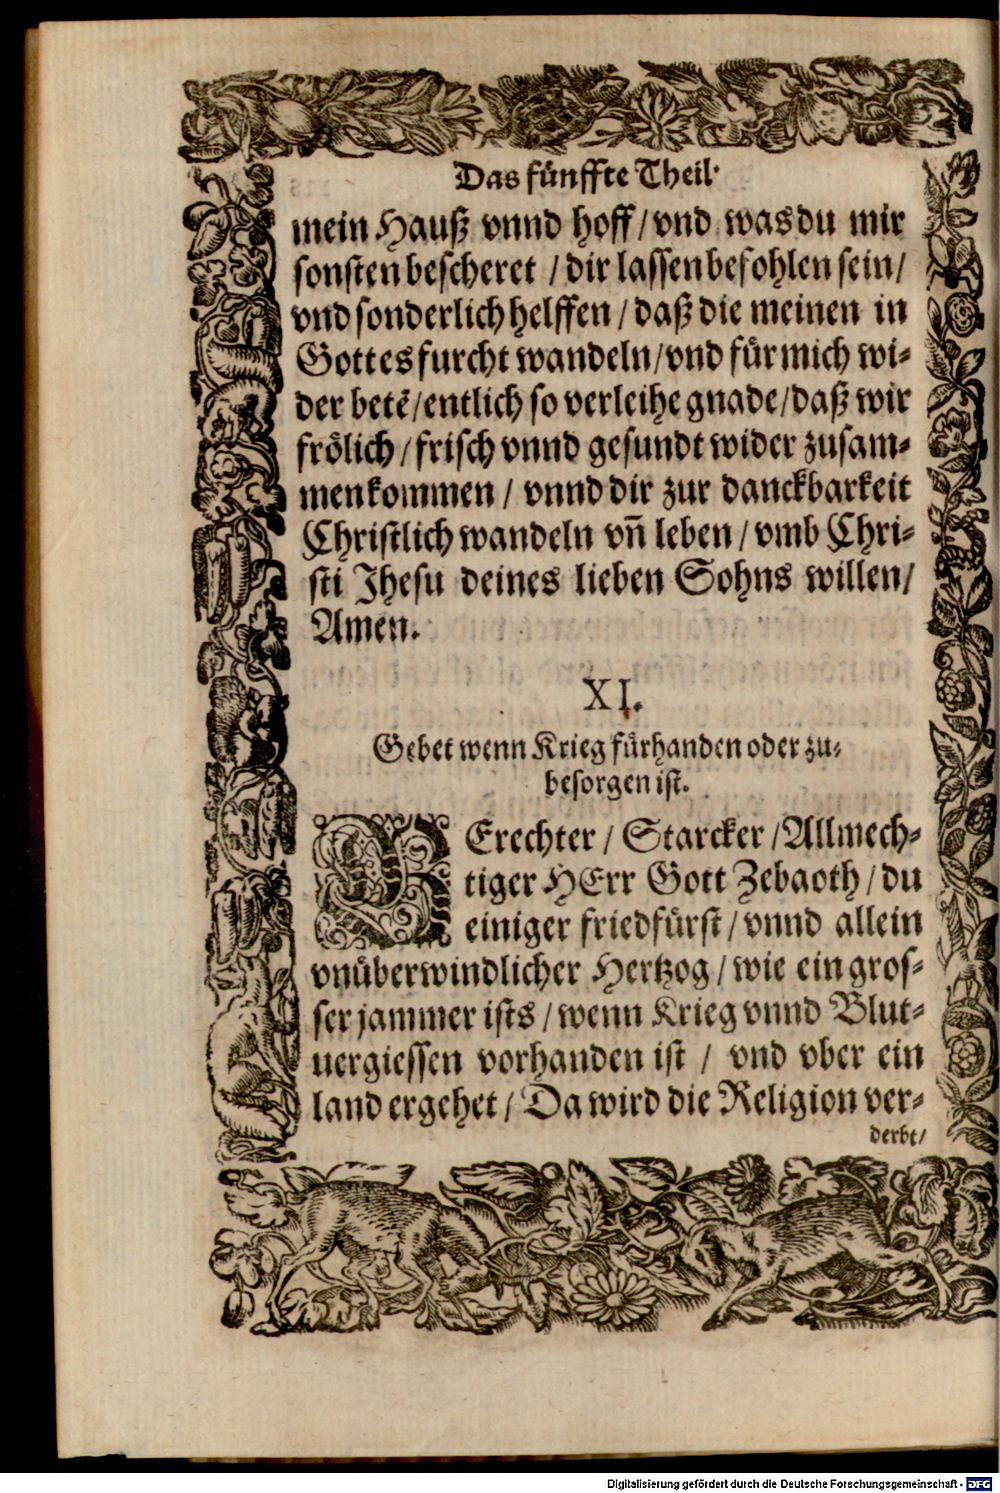 Das fünffte Theil.
mein Hauß vnnd hoff / vnd was du mir
sonsten bescheret / dir lassen befohlen sein /
vnd sonderlich helffen / daß die meinen in
Gottes furcht wandeln / vnd für mich wi-
der betē / entlich so verleihe gnade / daß wir
frölich / frisch vnnd gesundt wider zusam-
menkommen / vnnd dir zur danckbarkeit
Christlich wandeln vn̄ leben / vmb Chri-
sti Jhesu deines lieben Sohns willen /
Amen.
XI.
Gebet wenn Krieg fürhanden oder zu-
besorgen ist.
GErechter / Starcker / Allmech-
tiger HErr Gott Zebaoth / du
einiger friedfürst / vnnd allein
vnüberwindlicher Hertzog / wie ein gros-
ser jammer ists / wenn Krieg vnnd Blut-
uergiessen vorhanden ist / vnd vber ein
land ergehet / Da wird die Religion ver-
derbt /
Digitalisierung gefördert durch die Deutsche Forschungsgemeinschaft - DFG